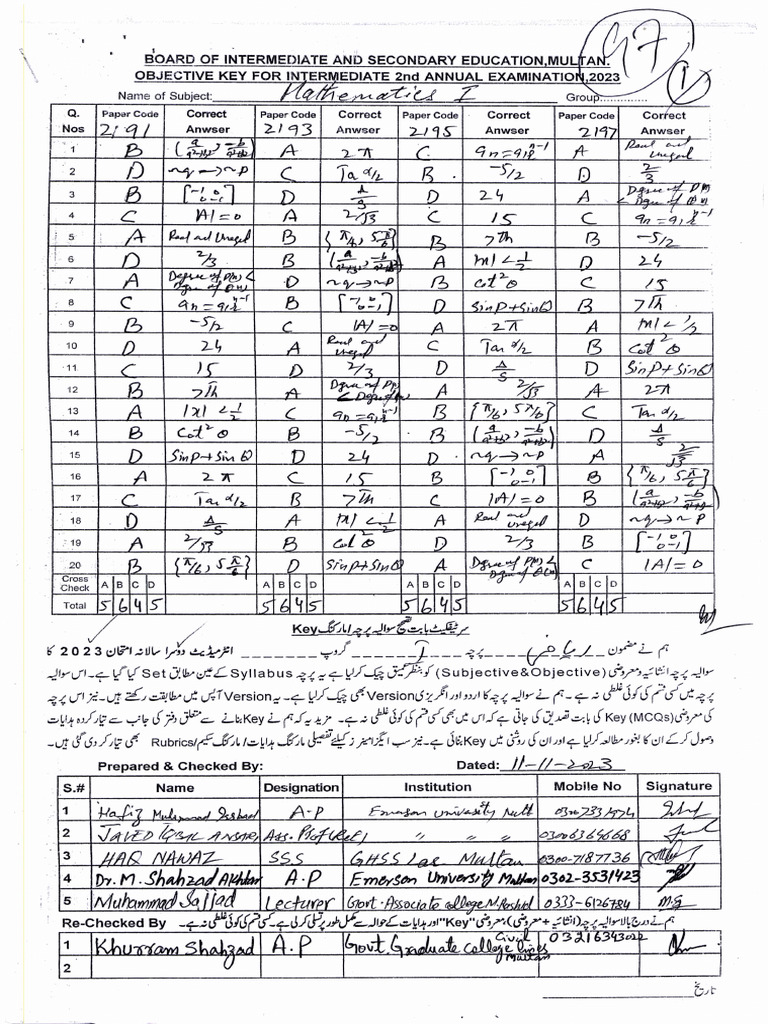 47
1
BOARD OF INTERMEDIATE AND SECONDARY EDUCATION,MULTAN.
OBJECTIVE KEY FOR INTERMEDIATE 2nd ANNUAL EXAMINATION,2023
Name of Subject: Mathematics I Group..............
Q. Nos Paper Code 2191 Correct Anwser Paper Code 2193 Correct Anwser Paper Code 2195 Correct Anwser Paper Code 2197 Correct Anwser
1 B (a/a²+b², -b/a²+b²) A 2π C an=a1r^n-1 A Real and Unequal
2 D ~q→~p C Tan α/2 B -5/2 D 2/3
3 B [-1 0 0 -1] D Δ/S D 24 A Degree of P(x) < Degree of Q(x)
4 C |A|=0 A 2/√3 C 15 C an=a1r^n-1
5 A Real and Unequal B {π/6, 5π/6} B 7th B -5/2
6 D 2/3 B (a/a²+b², -b/a²+b²) A |x|<1/2 D 24
7 A Degree of P(x) < Degree of Q(x) D ~q→~p B Cot²θ C 15
8 C an=a1r^n-1 B [-1 0 0 -1] D SinP+SinQ B 7th
9 B -5/2 C |A|=0 A 2π A |x|<1/2
10 D 24 A Real and Unequal C Tan α/2 B Cot²θ
11 C 15 D 2/3 D Δ/S D SinP+SinQ
12 B 7th A Degree of P(x) < Degree of Q(x) A 2/√3 A 2π
13 A |x|<1/2 C an=a1r^n-1 B {π/6, 5π/6} C Tan α/2
14 B Cot²θ B -5/2 B (a/a²+b², -b/a²+b²) D Δ/S
15 D SinP+SinQ D 24 D ~q→~p A 2/√3
16 A 2π C 15 B [-1 0 0 -1] B {π/6, 5π/6}
17 C Tan α/2 B 7th C |A|=0 B (a/a²+b², -b/a²+b²)
18 D Δ/S A |x|<1/2 A Real and Unequal D ~q→~p
19 A 2/√3 B Cot²θ D 2/3 B [-1 0 0 -1]
20 B {π/6, 5π/6} D SinP+SinQ A Degree of P(x) < Degree of Q(x) C |A|=0
Cross Check A B C D A B C D A B C D A B C D
Total 5 6 4 5 5 6 4 5 5 6 4 5 5 6 4 5
سرٹیفکیٹ بابت تصحیح سوالیہ پرچہ / مارکنگ Key
ہم نے مضمون ریاضی پرچہ I گروپ انٹرمیڈیٹ دوسرا سالانہ امتحان 2023 کا
سوالیہ پرچہ انشائیہ و معروضی (Subjective&Objective) کو بنظر عمیق چیک کر لیا ہے یہ پرچہ Syllabus کے عین مطابق Set کیا گیا ہے۔ اس سوالیہ
پرچہ میں کسی قسم کی کوئی غلطی نہ ہے۔ ہم نے سوالیہ پرچہ کا اردو اور انگریزی Version بھی چیک کر لیا ہے۔ یہ Version آپس میں مطابقت رکھتے ہیں۔ نیز اس پرچہ
کی معروضی (MCQs) Key کی بابت تصدیق کی جاتی ہے کہ اس میں بھی کسی قسم کی کوئی غلطی نہ ہے۔ مزید یہ کہ ہم نے Key بنانے سے متعلق دفتر کی جانب سے تیار کردہ ہدایات
وصول کر کے ان کا بغور مطالعہ کر لیا ہے اور ان کی روشنی میں Key بنائی ہے۔ نیز سب ایگزامینرز کیلئے تفصیلی مارکنگ ہدایات / مارکنگ سکیم / Rubrics بھی تیار کر دی گئی ہیں۔
Prepared & Checked By: Dated: 11-11-2023
S.# Name Designation Institution Mobile No Signature
1 Hafiz Muhammad A-P Emerson University Mult
2 JAVED IQBAL ANSARI Ass. Prof (Ret) " " " 03006364668
3 HAQ NAWAZ SSS GHSS Multan 0300-7187736
4 Dr. M. Shahzad Akhtar A.P Emerson University Multan 0302-3531423
5 Muhammad Sajjad Lecturer Govt. Associate college M. Rashid 0333-6126784
Re-Checked By ہم نے درج بالا سوالیہ پرچہ (انشائیہ + معروضی)، معروضی "Key" اور ہدایات کے حوالہ سے مکمل طور پر تسلی کر لی ہے۔ کسی قسم کی کوئی غلطی نہ ہے۔
1 Khurram Shahzad A.P Govt. Graduate college Civil lines Multan
2
تاریخ